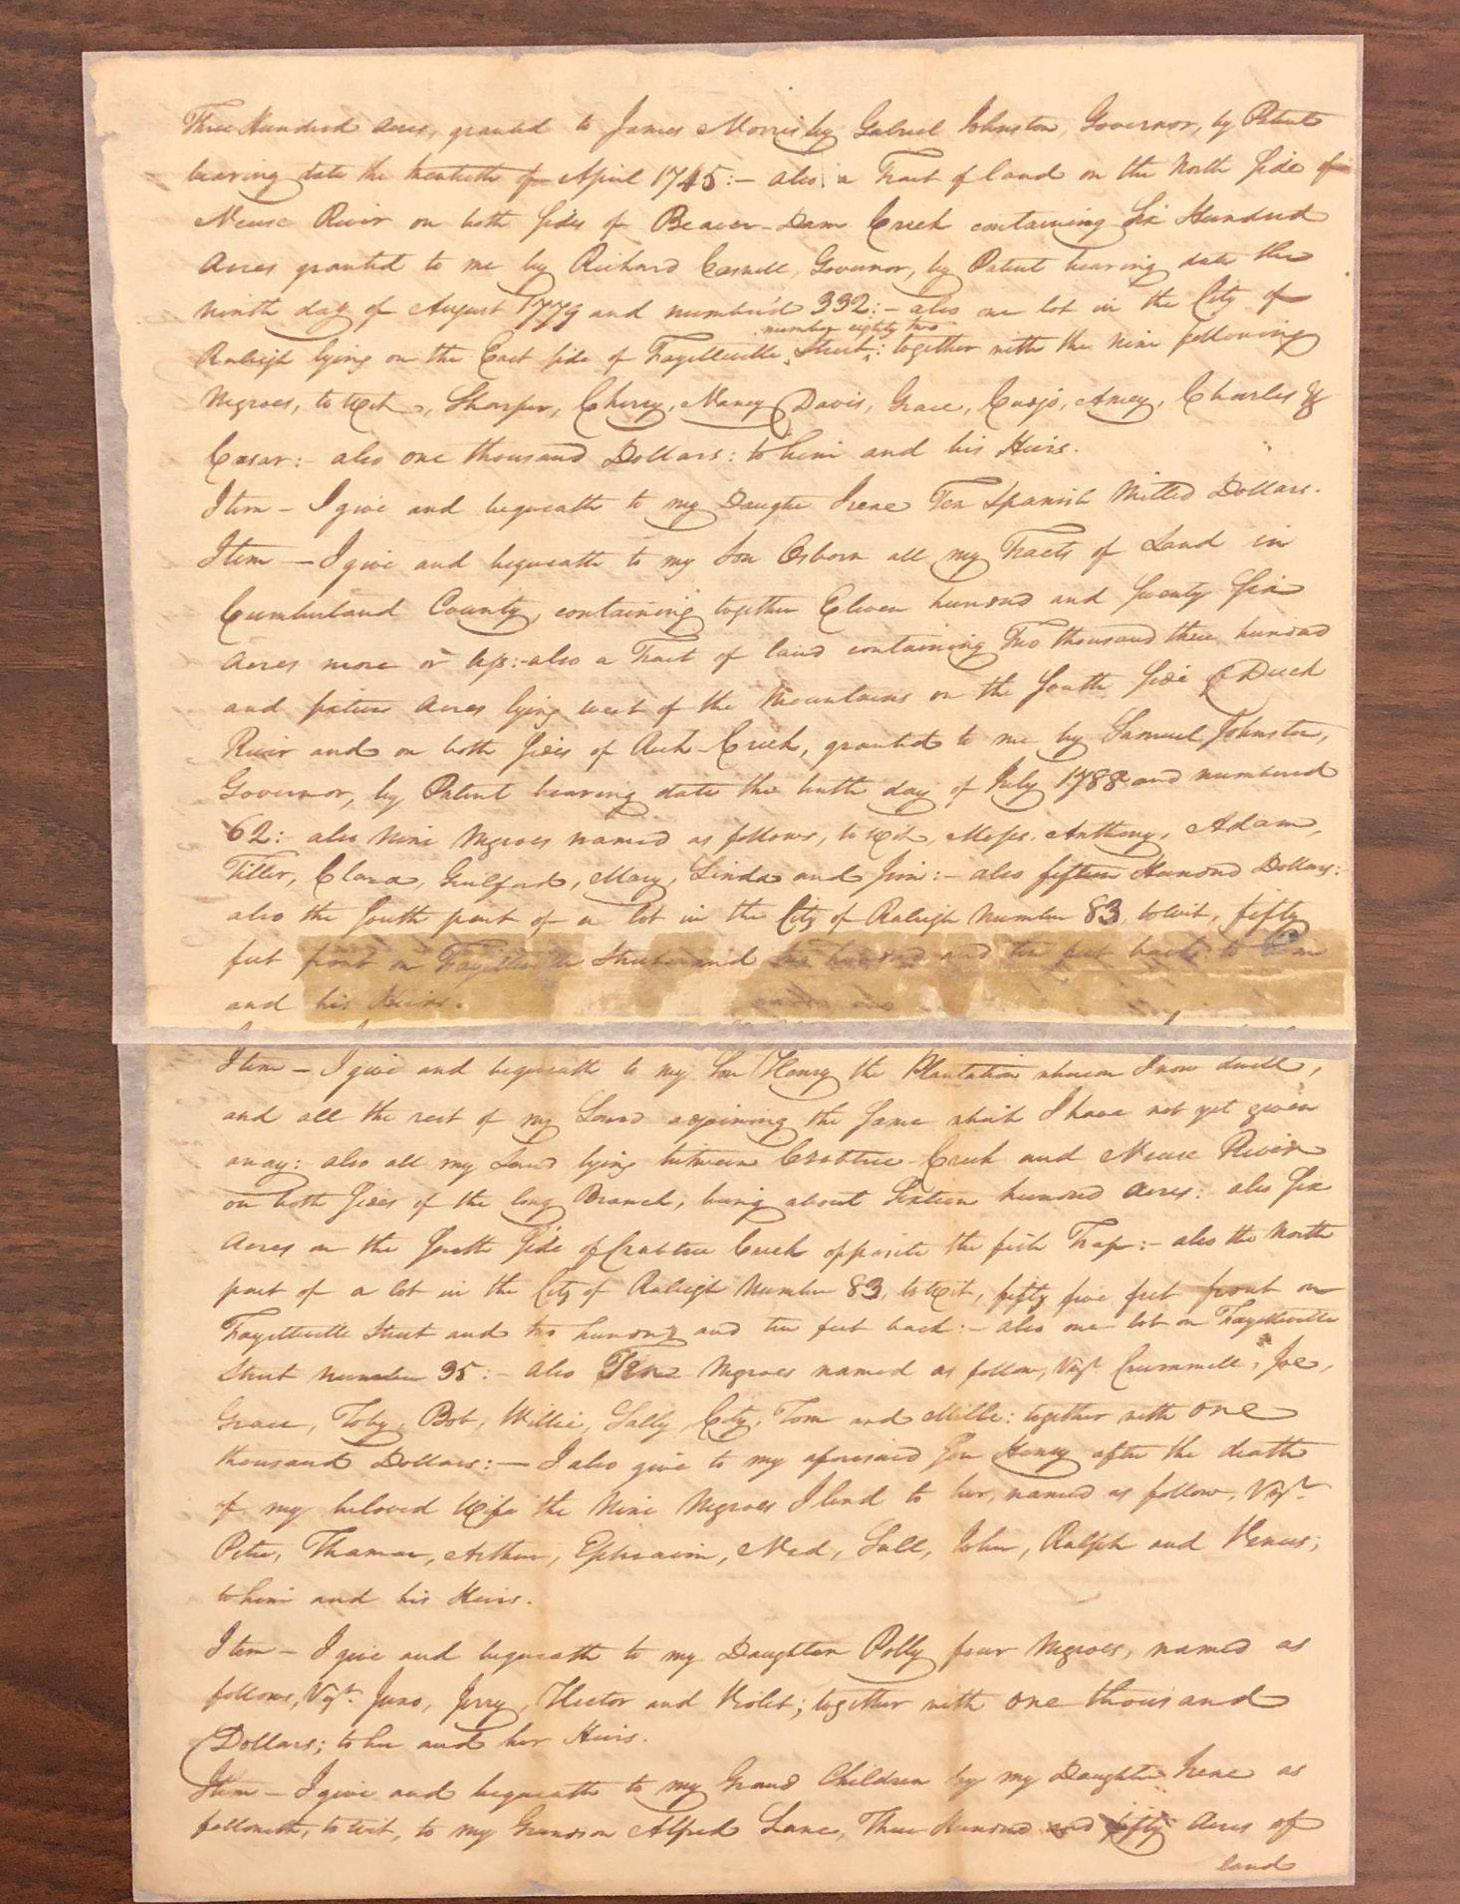 Three Hundred acres, granted to James Morris by Gabriel Johnston, Governor, by Patent
bearing date the twentieth of April 1745:- also a Tract of land on the North Side of
Neuse River on both Sides of Beaver-Dam Creek containing Six Hundred
Acres granted to me by Richard Caswell, Governor, by Patent bearing date the
ninth day of August 1779 and number'd 332:- also one lot in the City of
number eighty two
Raleigh lying on the East Side of Fayetteville Street: together with the nine following
Negroes, to wit, Sharper, Cherry, Nancy Davis, Grace, Cudjo, Amey, Charles &
Cesar:- also one thousand Dollars: to him and his Heirs.
Item - I give and bequeath to my Daughter Irene Ten Spanish Milled Dollars.
Item - I give and bequeath to my Son Osborn all my Tracts of Land in
Cumberland County, containing together Eleven hundred and Seventy Six
Acres more or less:- also a Tract of land containing Two thousand three hundred
and sixteen Acres lying west of the Mountains on the South Side of Duck
River and on both Sides of Creek, granted to me by Samuel Johnston,
Governor, by Patent bearing date the tenth day of July 1788 and numbered
62:- also Nine Negroes named as follows, to wit, Moses, Anthony, Adam,
Tiller, Clara, Guilford, Mary, Linda and Jim:- also fifteen Hundred Dollars:
also the South part of a lot in the City of Raleigh Number 83, to wit, fifty
feet front on Fayetteville Street and two hundred and ten feet back: to him
and his Heirs.
Item - I give and bequeath to my Son Henry the Plantation whereon I now dwell,
and all the rest of my Land adjoining the Same which I have not yet given
away: also all my Land lying between Crabtree-Creek and Neuse River
on both Sides of the long Branch, being about Sixteen hundred Acres: also Six
Acres on the South Side of Crabtree Creek opposite the fish Trap:- also the North
part of a lot in the City of Raleigh Number 83, to wit, fifty five feet front on
Fayetteville Street and two hundred and ten feet back:- also one lot on Fayetteville
Street Number 95:- also Ten Negroes named as follow, Vizt. Crummell, Joe,
Grace, Toby, Bob, Willie, Sally, City, Tom and Mille: together with one
thousand Dollars:- I also give to my aforesaid Son Henry after the death
of my beloved Wife the Nine Negroes I lend to her, named as follow, Vizt.
Peter, Thamar, Arthur, Ephraim, Ned, Sall, John, Ralph and Venus;
to him and his Heirs.
Item - I give and bequeath to my Daughter Polly four Negroes, named as
follows, Vizt. Juno, Jerry, Hector and Violet; together with one thousand
Dollars; to her and her Heirs.
Item - I give and bequeath to my Grand Children by my Daughter Irene as
followeth, to wit, to my Grandson Alfred Lane, Three Hundred and fifty Acres of
land